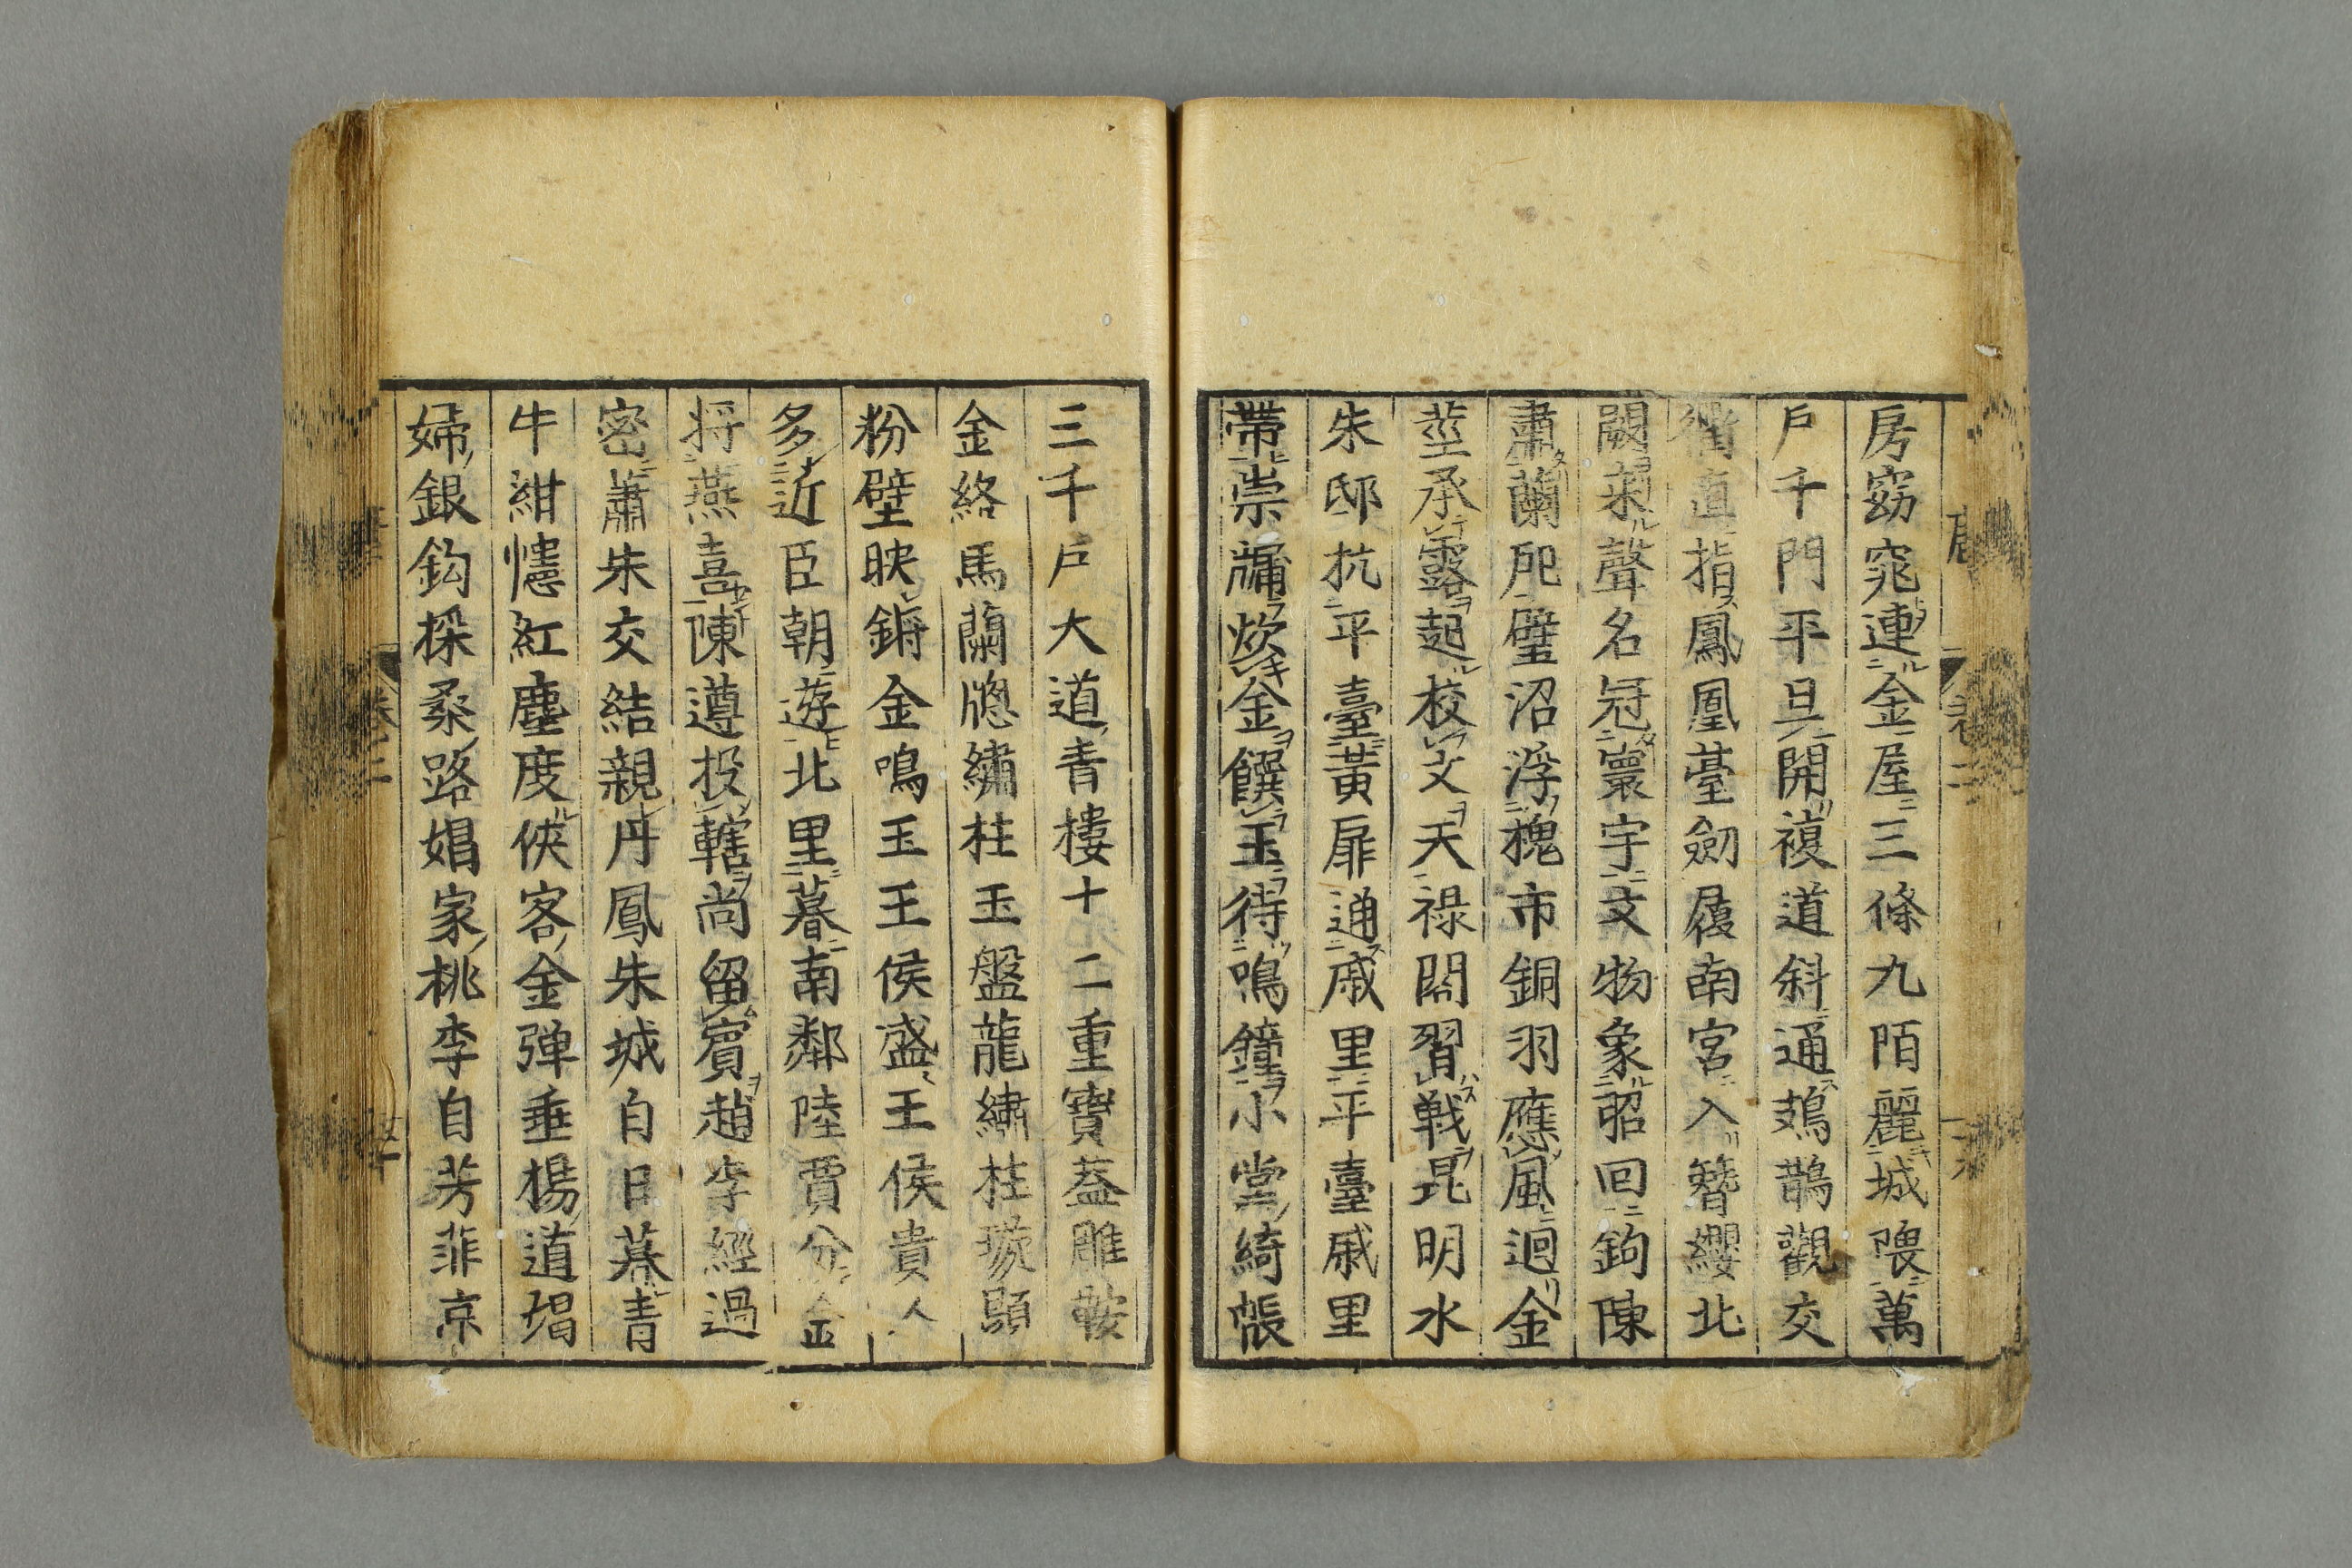 房窈窕連金屋三條九陌麗城隈萬
戶千門平旦開複道斜通鳷鵲觀交
衢直指鳳凰臺劒履南宮入簪纓北
闕來聲名冠寰宇文物象昭回鉤陳
肅蘭戺璧沼浮槐市銅羽應風迴金
莖承露起校文天祿閣習戦昆明水
朱邸抗平臺黃扉通戚里平臺戚里
帶崇墉炊金饌玉待鳴鐘小堂綺帳
三千戶大道青樓十二重寶葢雕鞍
金絡馬蘭牕繡柱玉盤龍繡柱璇題
粉壁映鏘金鳴玉王侯盛王侯貴人
多近臣朝遊北里暮南鄰陸賈分金
将燕喜陳遵投轄尚留賓趙李經過
密蕭朱交結親丹鳳朱城白日暮青
牛紺幰紅塵度俠客金弾垂楊道娼
婦銀鈎採桑路娼家桃李自芳菲京
卷二